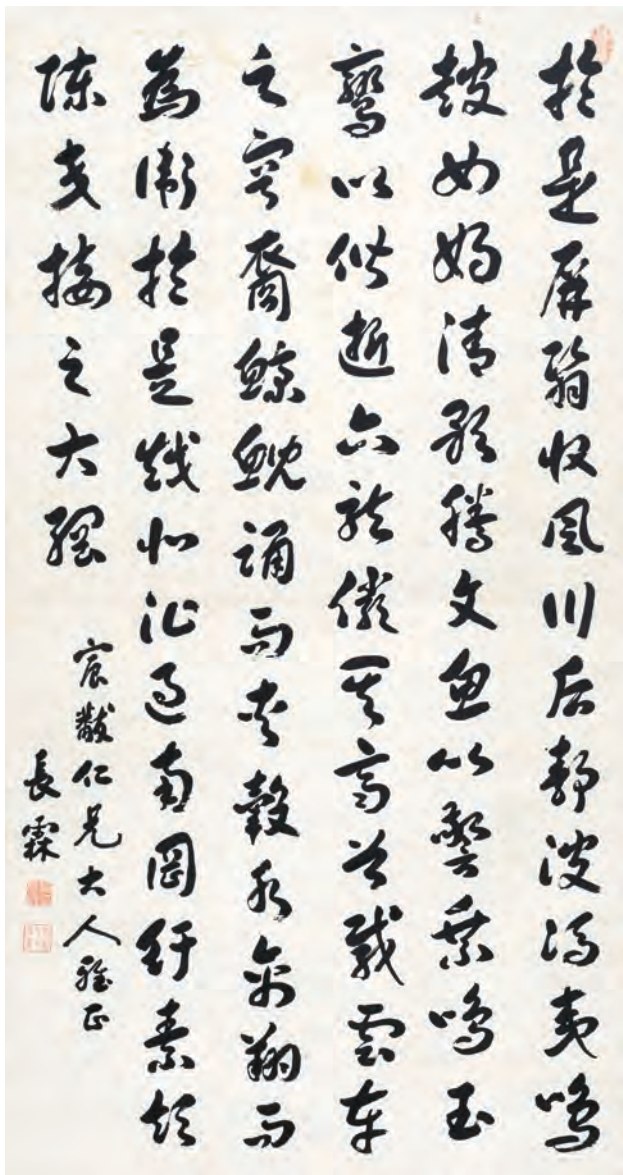 於是屏翳收風川后靜波馮夷鳴
鼓女媧清歌騰文魚以警乘鳴玉
鸞以偕逝六龍儼其齊首載雲車
之容裔鯨鯢踊而夾轂水禽翔而
為衛於是越北沚過南岡紆素領
陳交接之大綱
宸黻仁兄大人雅正
長霖